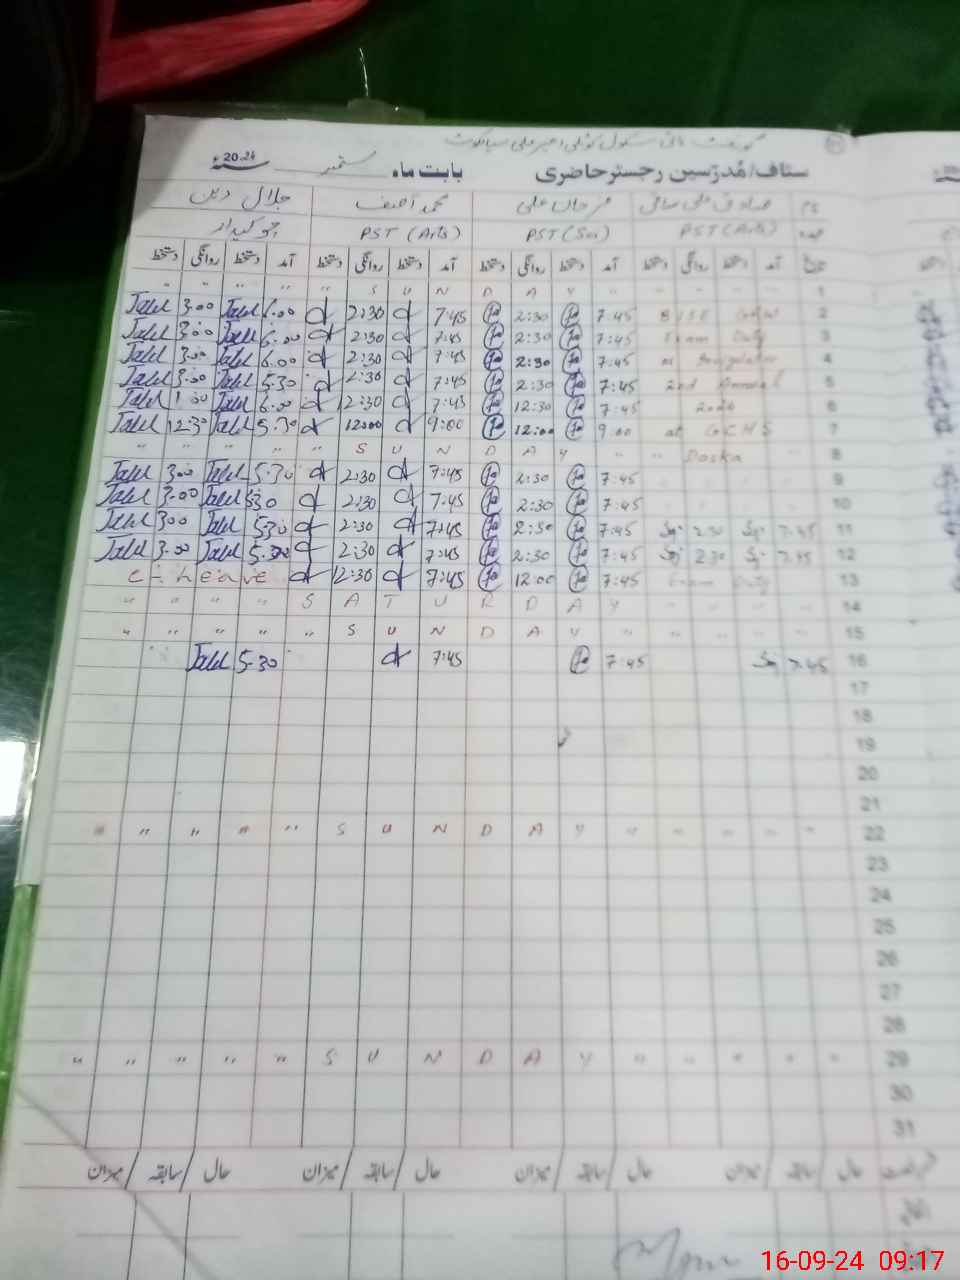 گورنمنٹ ہائی سکول کوٹلی امیر علی سیالکوٹ
سٹاف/مُدرّسین رجسٹر حاضری بابت ماہ ستمبر سنہ 2024ء
نام صادق علی مرجان علی محمد آصف جلال دین
عہدہ PST (Arts) PST (Sci) PST (Arts) چوکیدار
تاریخ آمد دستخط روانگی دستخط آمد دستخط روانگی دستخط آمد دستخط روانگی دستخط آمد دستخط روانگی دستخط
1 " " " " S U N D A Y " " "
2 BISE GRW 7:45 2:30 7:45 2:30 6.00 Jalal 3.00 Jalal
3 Exam Duty 7:45 2:30 7:45 2:30 6.00 Jalal 3.00 Jalal
4 7:45 2:30 7:45 2:30 6.00 Jalal 3.00 Jalal
5 2nd Annual 7:45 2:30 7:45 2:30 5.30 Jalal 3.00 Jalal
6 7:45 12:30 7:45 12:30 6.00 Jalal 1.00 Jalal
7 at GCHS 9:00 12:00 9:00 12:00 5.30 Jalal 12.30 Jalal
8 " " " " S U N D A Y " " Daska
9 7:45 2:30 7:45 2:30 5.30 Jalal 3.00 Jalal
10 7:45 2:30 7:45 2:30 5.30 Jalal 3.00 Jalal
11 7:45 2:30 7:45 2:30 7:45 2:30 5.30 Jalal 3.00 Jalal
12 7:45 2:30 7:45 2:30 7:45 2:30 5.30 Jalal 3.00 Jalal
13 Exam Duty 7:45 12:00 7:45 12:30 C. Leave
14 " " " " S A T U R D A Y " " " "
15 " " " " " S U N D A Y " " " "
16 7:45 7:45 7:45 5.30 Jalal
17
18
19
20
21
22 " " " " " S U N D A Y " " " " "
23
24
25
26
27
28
29 " " " " " S U N D A Y " " " " "
30
31
حال / سابقہ / میزان حال / سابقہ / میزان حال / سابقہ / میزان حال / سابقہ / میزان
16-09-24 09:17